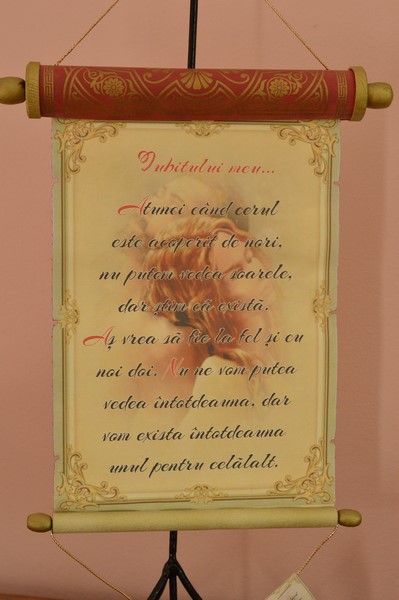 Iubitului meu...
Atunci când cerul
este acoperit de nori,
nu putem vedea soarele,
dar știm că există.
Aș vrea să fie la fel și cu
noi doi. Nu ne vom putea
vedea întotdeauna, dar
vom exista întotdeauna
unul pentru celălalt.